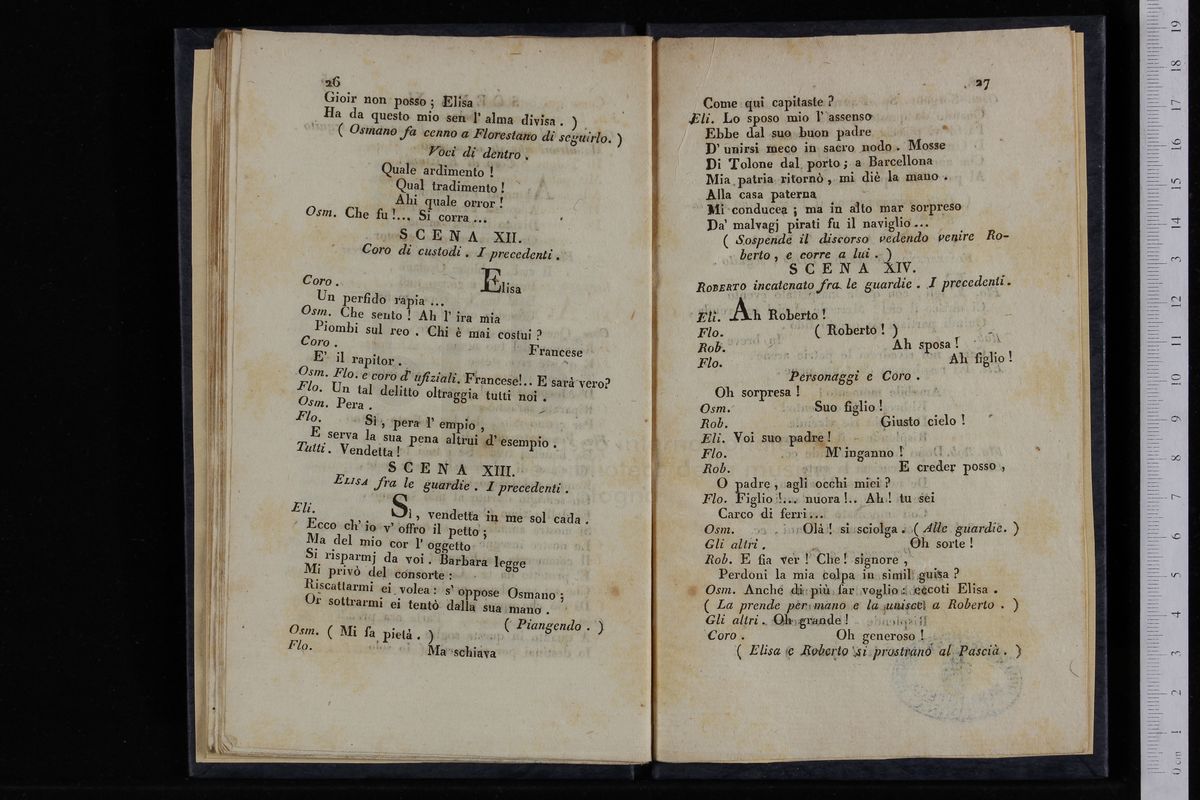 26
Gioir non posso ; Elisa
Ha da questo mio sen l' alma divisa . )
( Osmano fa cenno a Florestano di seguirlo. )
Voci di dentro .
Quale ardimento !
Qual tradimento !
Ahi quale orror !
Osm. Che fu !... Si corra ...
SCENA XII.
Coro di custodi . I precedenti .
Coro . Elisa
Un perfido rapìa ...
Osm. Che sento ! Ah l' ira mia
Piombi sul reo . Chi è mai costui ?
Coro . Francese
E' il rapitor .
Osm. Flo. e coro d' ufiziali. Francese!.. E sarà vero?
Flo. Un tal delitto oltraggia tutti noi .
Osm. Pera .
Flo. Si , pera l' empio ,
E serva la sua pena altrui d' esempio .
Tutti . Vendetta !
SCENA XIII.
ELISA fra le guardie . I precedenti .
Eli. Sì, vendetta in me sol cada .
Ecco ch' io v' offro il petto ;
Ma del mio cor l' oggetto
Si risparmj da voi . Barbara legge
Mi privò del consorte :
Riscattarmi ei volea : s' oppose Osmano ;
Or sottrarmi ei tentò dalla sua mano .
( Piangendo . )
Osm. ( Mi fa pietà . )
Flo. Ma schiava
27
Come qui capitaste ?
Eli. Lo sposo mio l' assenso
Ebbe dal suo buon padre
D' unirsi meco in sacro nodo . Mosse
Di Tolone dal porto ; a Barcellona
Mia patria ritornò , mi diè la mano .
Alla casa paterna
Mi conducea ; ma in alto mar sorpreso
Da' malvagj pirati fu il naviglio ...
( Sospende il discorso vedendo venire Ro-
berto , e corre a lui . )
SCENA XIV.
ROBERTO incatenato fra le guardie . I precedenti.
Eli. Ah Roberto !
Flo. ( Roberto ! )
Rob. Ah sposa !
Flo. Ah figlio !
Personaggi e Coro .
Oh sorpresa !
Osm. Suo figlio !
Rob. Giusto cielo !
Eli. Voi suo padre !
Flo. M' inganno !
Rob. E creder posso ,
O padre , agli occhi miei ?
Flo. Figlio !... nuora !.. Ah ! tu sei
Carco di ferri ...
Osm. Olà ! si sciolga . ( Alle guardie. )
Gli altri . Oh sorte !
Rob. E fia ver ! Che ! signore ,
Perdoni la mia colpa in simil guisa ?
Osm. Anche di più far voglio : eccoti Elisa .
( La prende per mano e la unisce a Roberto . )
Gli altri . Oh grande !
Coro . Oh generoso !
( Elisa e Roberto si prostrano al Pascià . )